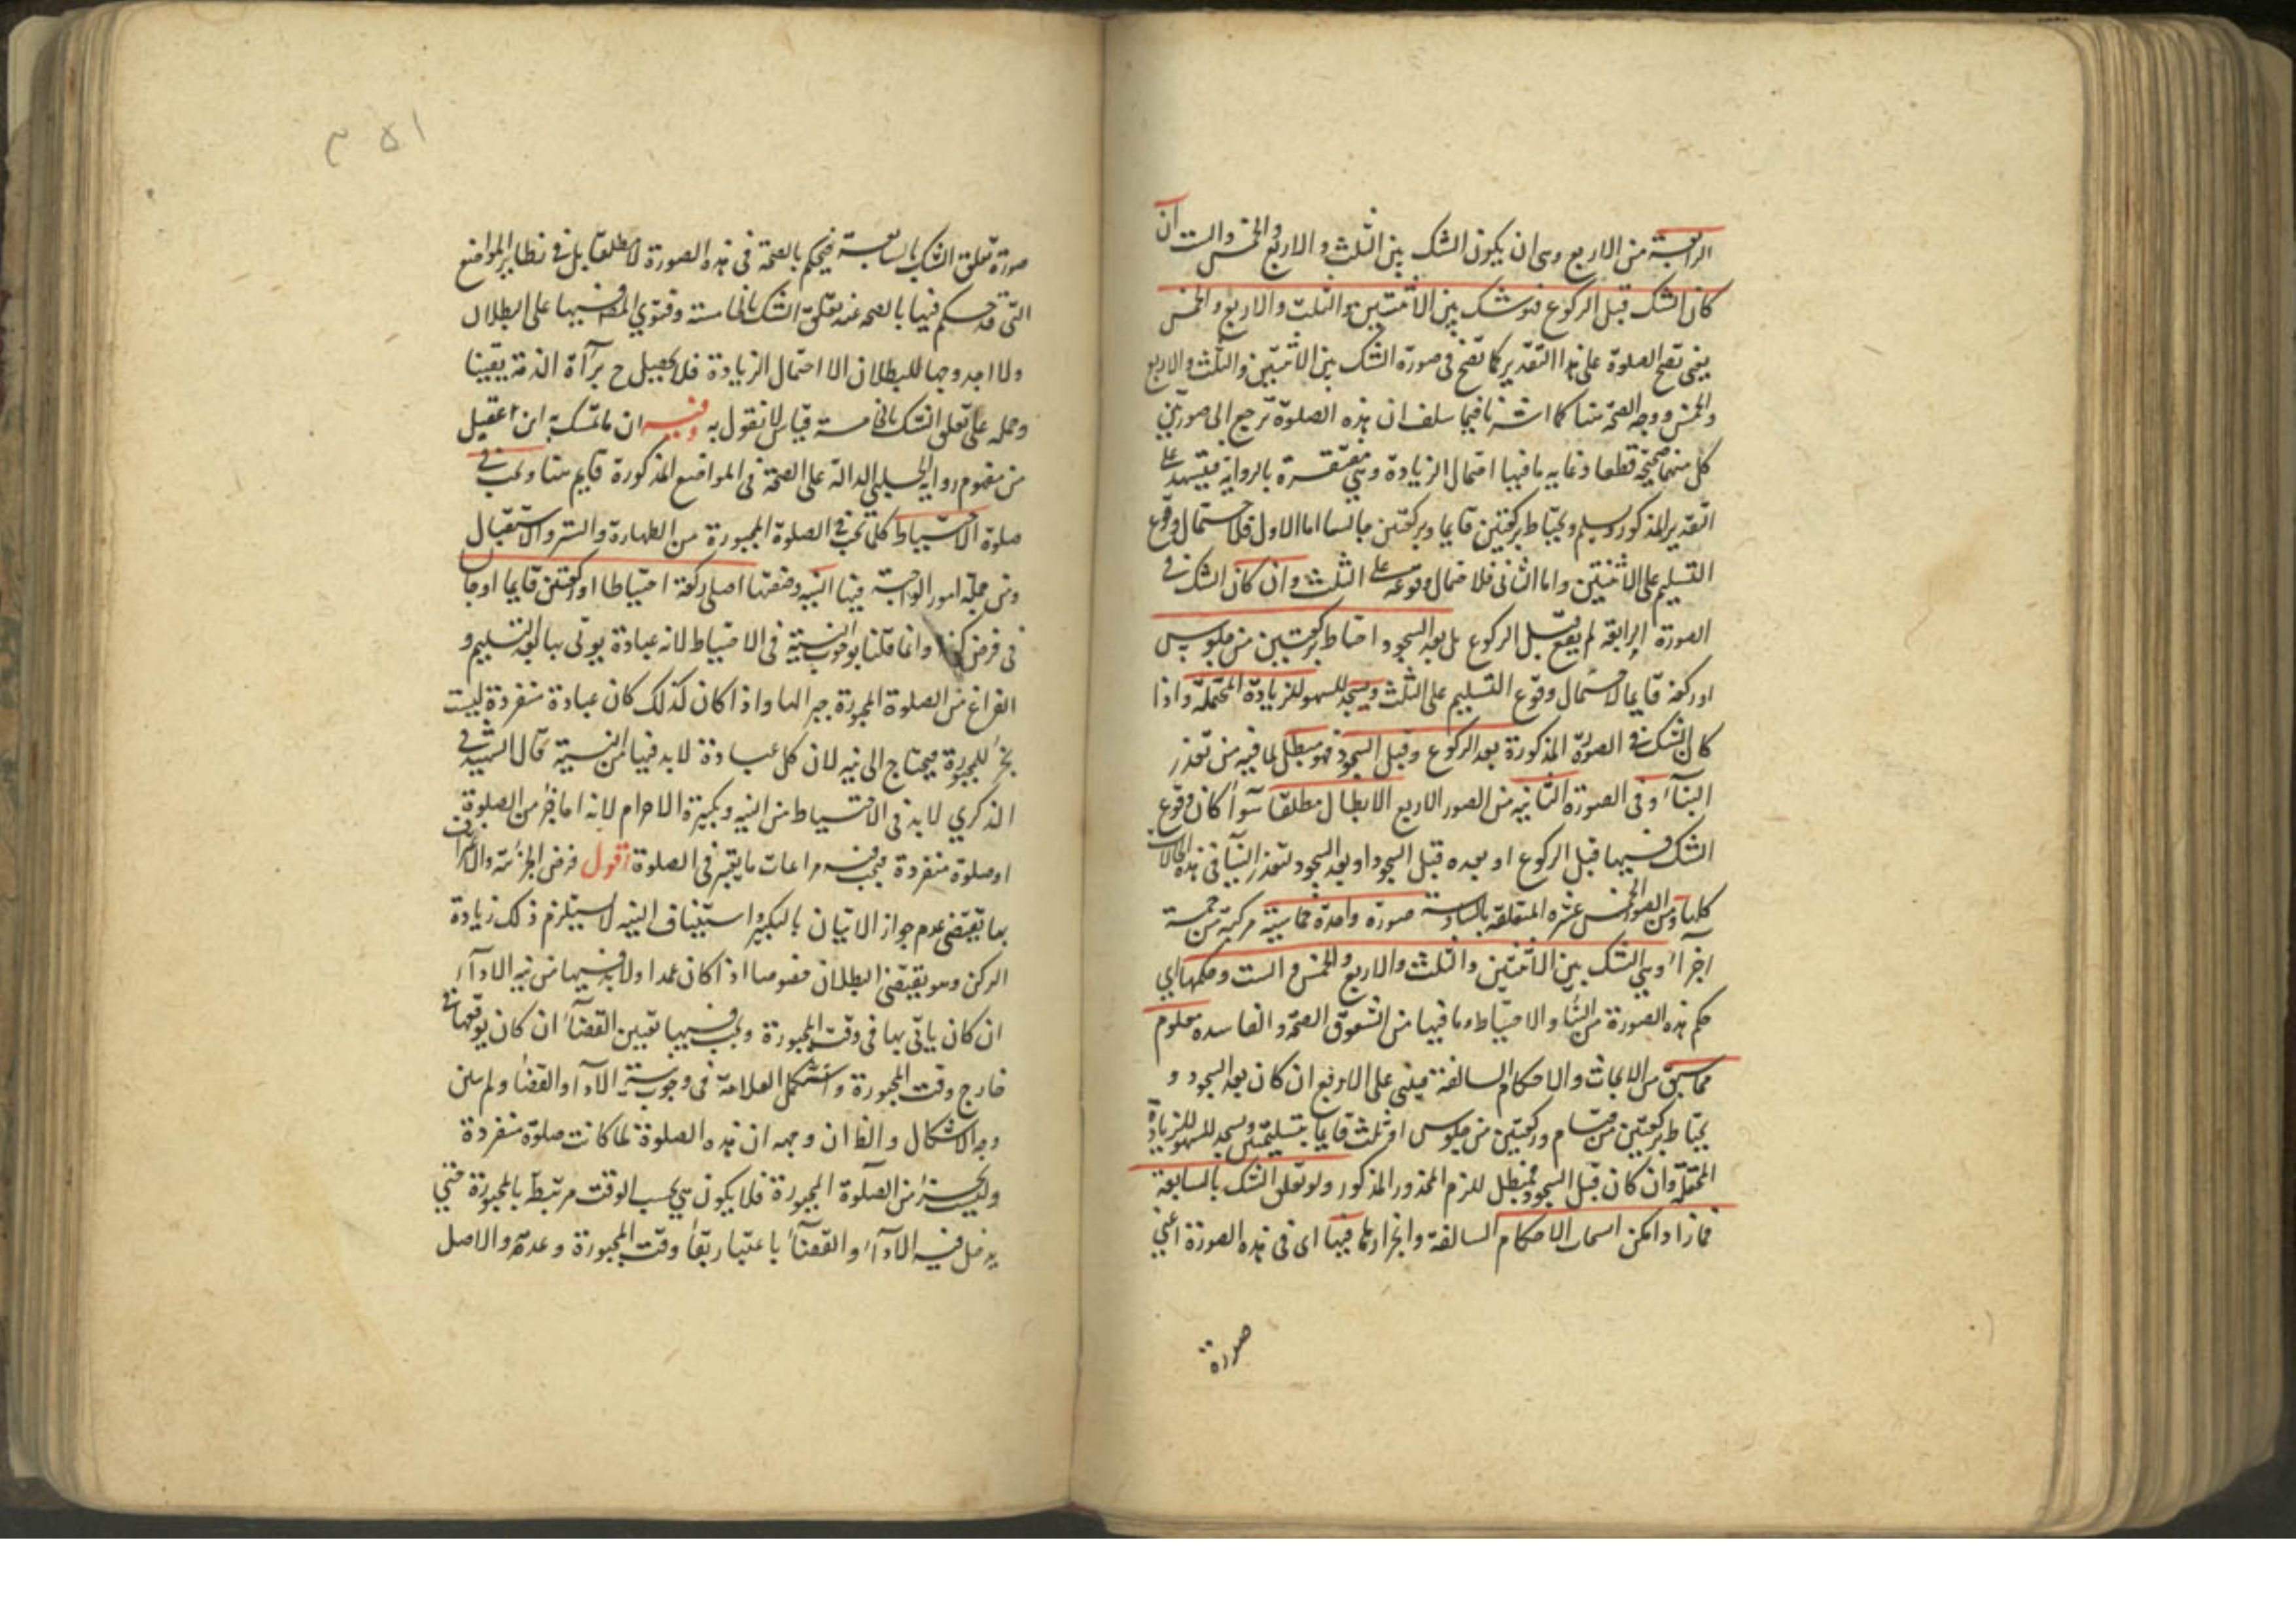 الرابعة من الاربع وهى ان يكون الشك بين الثلث والاربع والخمس والست ان
كان الشك قبل الركوع فهو شك بين الاثنتين والثلث والاربع والخمس
يعنى تصح الصلوة على هذا التقدير كما تصح فى صورة الشك بين الاثنتين والثلث والاربع
والخمس ووجه الصحة هنا كما اشرنا فيما سلف ان هذه الصلوة ترجع الى صورتين
كل منهما صحيحة قطعا وغايه ما فيها احتمال الزيادة وهى مغتفرة بالرواية فيتشهد على
التقدير المذكور ويسلم ويحتاط بركعتين قايما وبركعتين جالسا اما الاول فلاحتمال وقوع
التسليم على الاثنتين واما الثانى فلاحتمال وقوعه على الثلث وان كان الشك فى
الصورة الرابعة لم يقع قبل الركوع بل بعد السجود احتاط بركعتين من جلوس
او ركعة قايما لاحتمال وقوع التسليم على الثلث ويسجد للسهو للزيادة المحتملة واذا
كان الشك فى الصورة المذكورة بعد الركوع وقبل السجود فهو مبطل لما فيه من تعذر
البنآء وفى الصورة الثانيه من الصور الاربع الابطال مطلقا سوآء كان وقوع
الشك فيها قبل الركوع او بعده قبل السجود او بعد السجود لتعذر البنآ فى هذه الحالات
كلها ومن الصور الخمس عشره المتعلقه بالسادسة صورة واحدة خماسية مركبة من خمسة
اجزآء وهى الشك بين الاثنتين والثلث والاربع والخمس والست وحكمها اى
حكم هذه الصورة من البنآء والاحتياط وما فيها من الشقوق الصحة والفاسده معلوم
مما سبق من الابحاث والاحكام السالفة فيبنى على الاربع ان كان بعد السجود و
يحتاط بركعتين من قيام وركعتين من جلوس او ثلث قايما بتسليمتين ويسجد للسهو للزيادة
المحتملة وان كان قبل السجود فمبطل للزم المحذور المذكور ولو تعلق الشك بالسابعة
فما زاد امكن انسحاب الاحكام السالفة وانجرارها فيها اى فى هذه الصورة اعنى
صورة
٥١ م
صورة تعلق الشك بالسابعة فيحكم بالصحة فى هذه الصورة لا مطلقا بل فى نظاير المواضع
التى قد حكم فيها بالصحه عند تعلق الشك بالخامسته وفتوي المص فيها على البطلان
ولا اجد وجها للبطلان الا احتمال الزيادة فلا يحصل ح برآءة الذمة يقينا
وحمله على تعلق الشك بالخامسة قياس لا نقول به وفيه ان ما تمسك به ابن عقيل
من مفهوم رواية الحلبى الدالة على الصحة فى المواضع المذكورة قايم هنا ويجب فى
صلوة الاحتياط كلما يجب فى الصلوة المجبورة من الطهارة والستر والاستقبال
ومن جملة امور الواجبة فيها النيه وصفتها اصلى ركعة احتياطا او ركعتين قايما او جالسا
فى فرض كذا وانما قلنا بوجوب النية فى الاحتياط لانه عبادة يوتى بها بعد التسليم و
الفراغ من الصلوة المجبورة جبرا لها واذا كان كذلك كان عبادة منفردة ليست
بجزء للمجبورة فيحتاج الى نيه لان كل عبادة لا بد فيها من النية قال الشهيد فى
الذكري لا بد فى الاحتياط من النيه وتكبيرة الاحرام لانه اما جزء من الصلوة
او صلوة منفردة فيجب فيه مراعات ما يعتبر فى الصلوة اقول فرض الجزئية والاعتراف
بها يقتضى عدم جواز الاتيان بالتكبير واستيناف النيه لاستلزم ذلك زيادة
الركن وهو يقتضى البطلان خصوصا اذا كان عمدا ولا بد فيها من نيه الادآء
ان كان ياتى بها فى وقت المجبورة ويجب فيها تعيين القضآء ان كان يوقعها فى
خارج وقت المجبورة واستشكل العلامة فى وجوب نية الادآء والقضآء ولم يبين
وجه الاشكال والظ ان وجهه ان هذه الصلوة لما كانت صلوة منفردة
وليست جزء من الصلوة المجبورة فلا يكون هى بحسب الوقت مرتبطا بالمجبورة حتى
يدخل فيه الادآء والقضآء باعتبار بقآء وقت المجبورة وعدمه والاصل